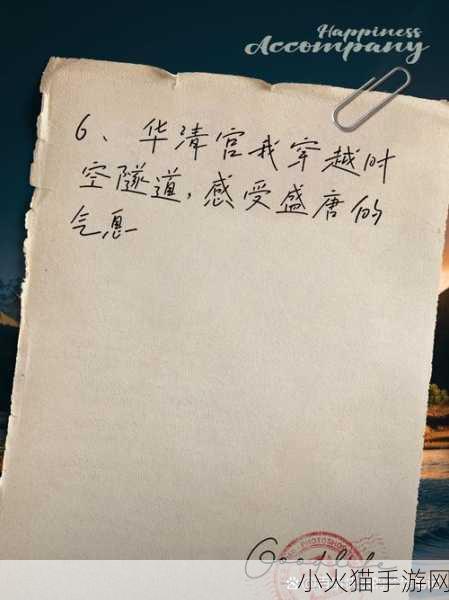 Happiness
Accompany
6、华清宫我穿越时
空隧道,感受盛唐的
气息
Good life
小火猫手游网